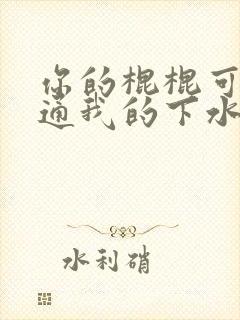 你的棍棍可
通我的下水
水利硝